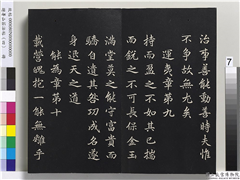 治事善能動善時夫惟
不爭故無尤矣
運夷章第九
持而盈之不如其已揣
而銳之不可長保金玉
滿堂莫之能守富貴而
驕自遺其咎功成名遂
身退天之道
能為章第十
載營魄抱一能無離乎
7